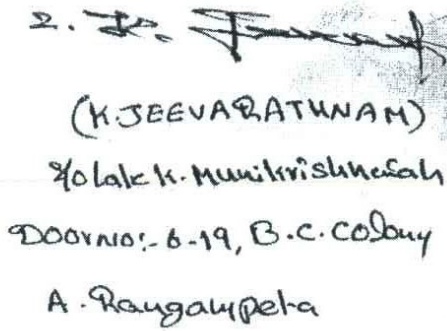 2. K.
(K.JEEVARATHNAM)
S/o late K. Munikrishnaiah
Door no:- 6-19, B.C. Colony
A. Rangampeta